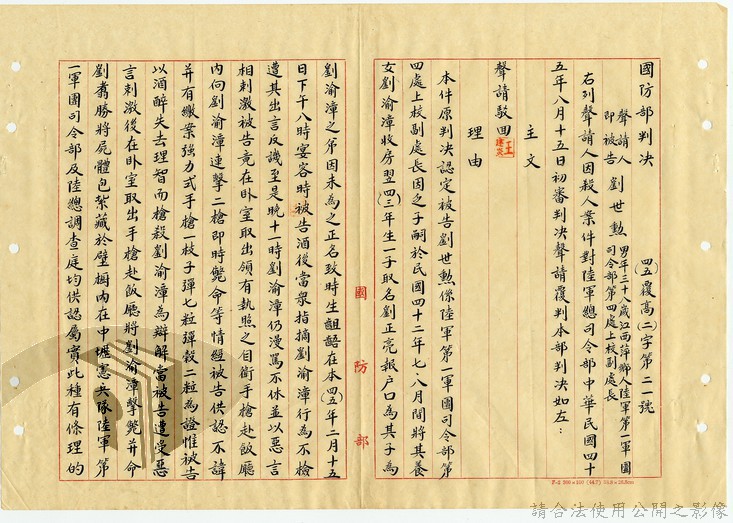 國防部判決
(四五)覆高(二)字第二一號
聲請人
即被告 劉世勲 男年三十八歲江西萍鄉人陸軍第一軍團
司令部第四處上校副處長
右列聲請人因殺人案件對陸軍總司令部中華民國四十
五年八月十五日初審判決聲請覆判本部判決如左：
主文
聲請駁回
理由
本件原判決認定被告劉世勲係陸軍第一軍團司令部第
四處上校副處長因乏子嗣於民國四十二年七八月間將其養
女劉渝漳收房翌(四三)年生一子取名劉正亮報戶口為其子為
國防部
劉渝漳之弟因未為之正名致時生詛語在本(四五)年二月十五
日下午八時宴客時被告酒後當衆指摘劉渝漳行為不檢
遭其出言反譏至是晚十一時劉渝漳仍漫罵不休並以惡言
相刺激被告竟在卧室取出領有執照之自衛手槍赴飯廳
內向劉渝漳連擊二槍即時斃命等情經被告供認不諱
并有繳案強力式手槍一枝子彈七粒彈殼二粒為證惟被告
以酒醉失去理智而槍殺劉渝漳為辯解當被告遭受惡
言刺激後在卧室取出手槍赴飯廳將劉渝漳擊斃并命
劉喬勝將屍體包紮藏於壁櫥內在中壢憲兵隊陸軍第
一軍團司令部及陸總調查庭均供認屬實此種有條理的
請合法使用公開之影像